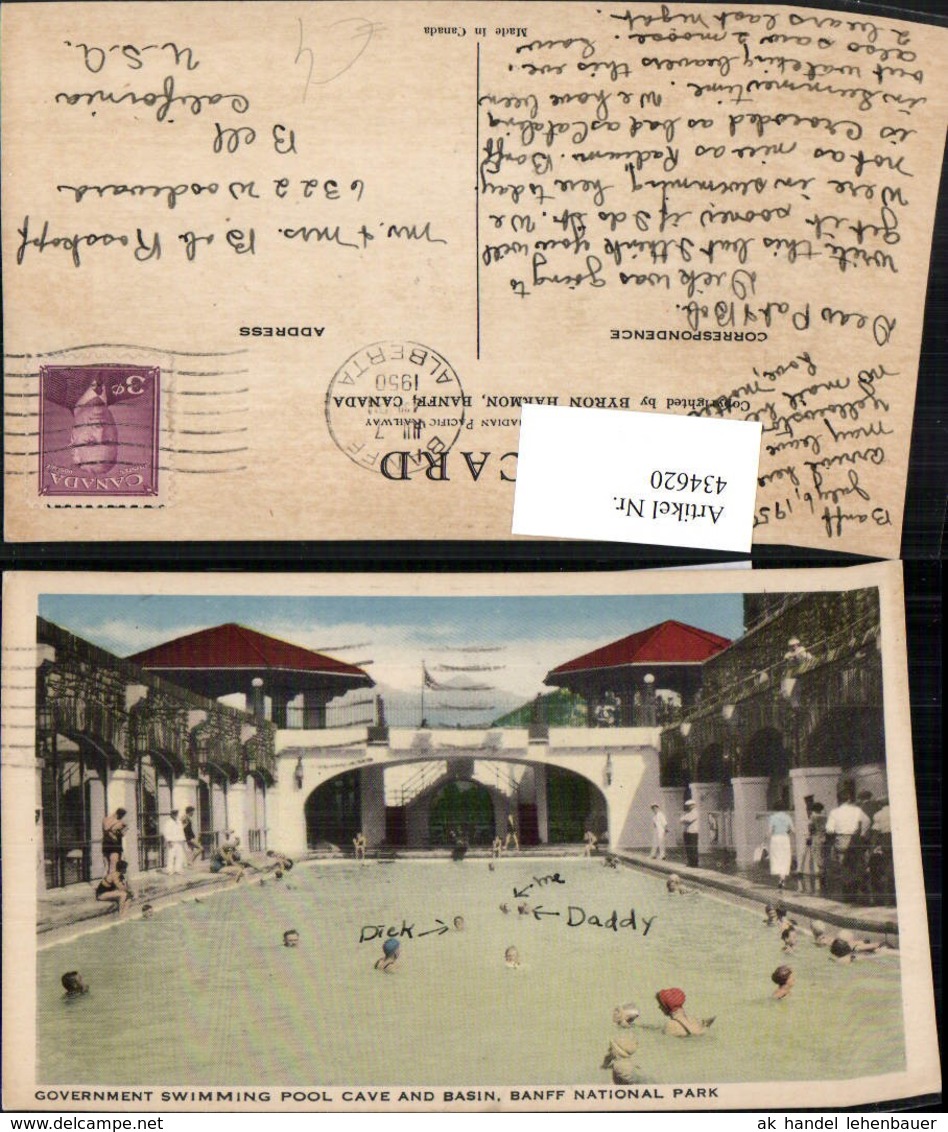 Banff
July 6, 1950
arrived here
may leave
yellowslip
no mail
love, mom
CARD
CANADIAN PACIFIC RAILWAY
Copyrighted by BYRON HARMON, BANFF, CANADA
CORRESPONDENCE
ADDRESS
BANFF
JUL 7
1950
ALBERTA
CANADA
POSTES POSTAGE
3¢
Dear Pat & Bob.
Dick was going to
write this but I think you will
get it sooner if I do it. We
were in swimming here today
not as nice as Radium. Banff
is crowded as bad as Catalina
in summer time. We have been
out watching beavers this eve.
also saw 2 moose. Saw
2 bears last night.
Mr. & Mrs. Bob Rosskopf
6322 Woodward
Bell
California
U.S.A.
Made in Canada
€4
Artikel Nr.
434620
me
Dick
Daddy
GOVERNMENT SWIMMING POOL CAVE AND BASIN, BANFF NATIONAL PARK
ak handel lehenbauer